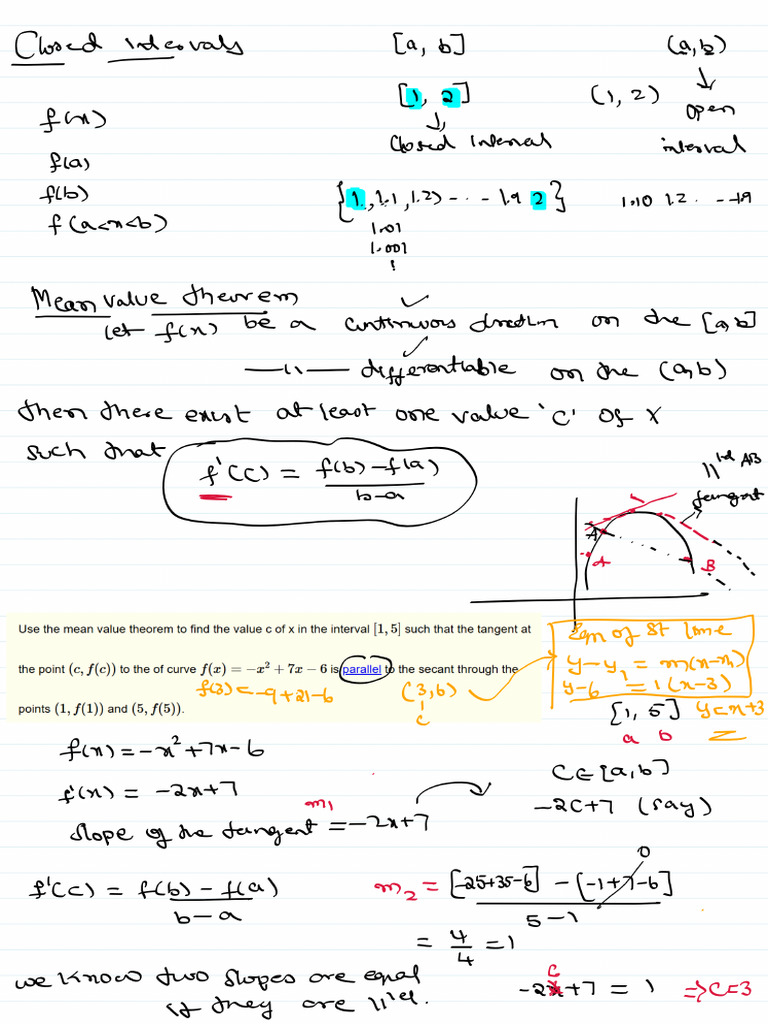 Closed intervals [a, b] (a, b)
[1, 2] (1, 2) open
f(x) closed interval interval
f(a)
f(b) {1, 1.1, 1.2) - - - - 1.9 2} 1.10 1.2 . - - 1.9
f(a<x<b) 1.01
1.001
Mean value theorem
let f(x) be a continuous function on the [a, b]
—— 11 —— differentiable on the (a, b)
then there exist at least one value 'c' of x
such that f'(c) = f(b) - f(a)
b-a
11^lel AB
tangent
A
A B
Use the mean value theorem to find the value c of x in the interval [1, 5] such that the tangent at
the point (c, f(c)) to the of curve f(x) = −x² + 7x − 6 is parallel to the secant through the
points (1, f(1)) and (5, f(5)).
f(3) = -9 + 21 - 6 (3, 6)
c
Eqn of St line
y - y₁ = m(x - x₁)
y - 6 = 1(x - 3)
[1, 5] y = x + 3
a b
f(x) = -x² + 7x - 6
f'(x) = -2x + 7 C∈[a, b]
m₁ -2c + 7 (say)
slope of the tangent = -2x + 7
f'(c) = f(b) - f(a)
b - a
m₂ = [-25+35-6] - (-1+7-6] 0
5 - 1
= 4/4 = 1
we know two slopes are equal
if they are 11'lel.
c
-2x + 7 = 1 ⇒ c = 3